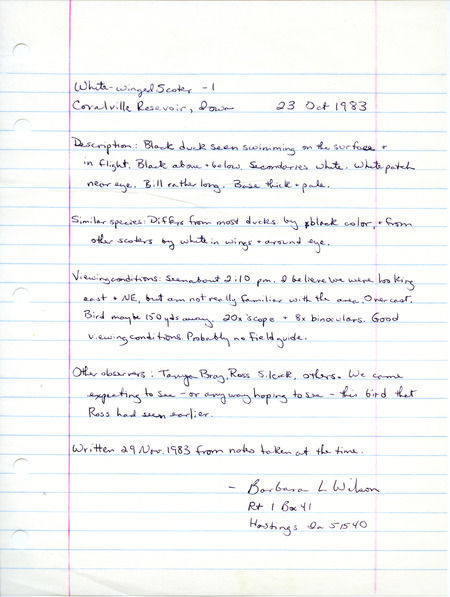 White-winged Scoter -1
Coralville Resevoir, Iowa 23 Oct 1983
Description: Black duck seen swimming on the surface +
in flight. Black above + below. Secondaries white. White patch
near eye. Bill rather long. Base thick + pale.
Similar species: Differs from most ducks by black color, + from
other scoters by white in wings + around eye.
Viewing conditions: Seen about 2:10 pm. I believe we were looking
east + NE, but am not really familiar with the area. Overcast.
Bird maybe 150 yds away. 20x scope + 8x binoculars. Good
viewing conditions. Probably no field guide.
Other observers: Tanya Bray, Ross Silcock, others. We came
expecting to see - or anyway hoping to see - this bird that
Ross had seen earlier.
Written 29 Nov. 1983 from notes taken at the time.
- Barbara L Wilson
Rt 1 Box 41
Hastings Ia 51540